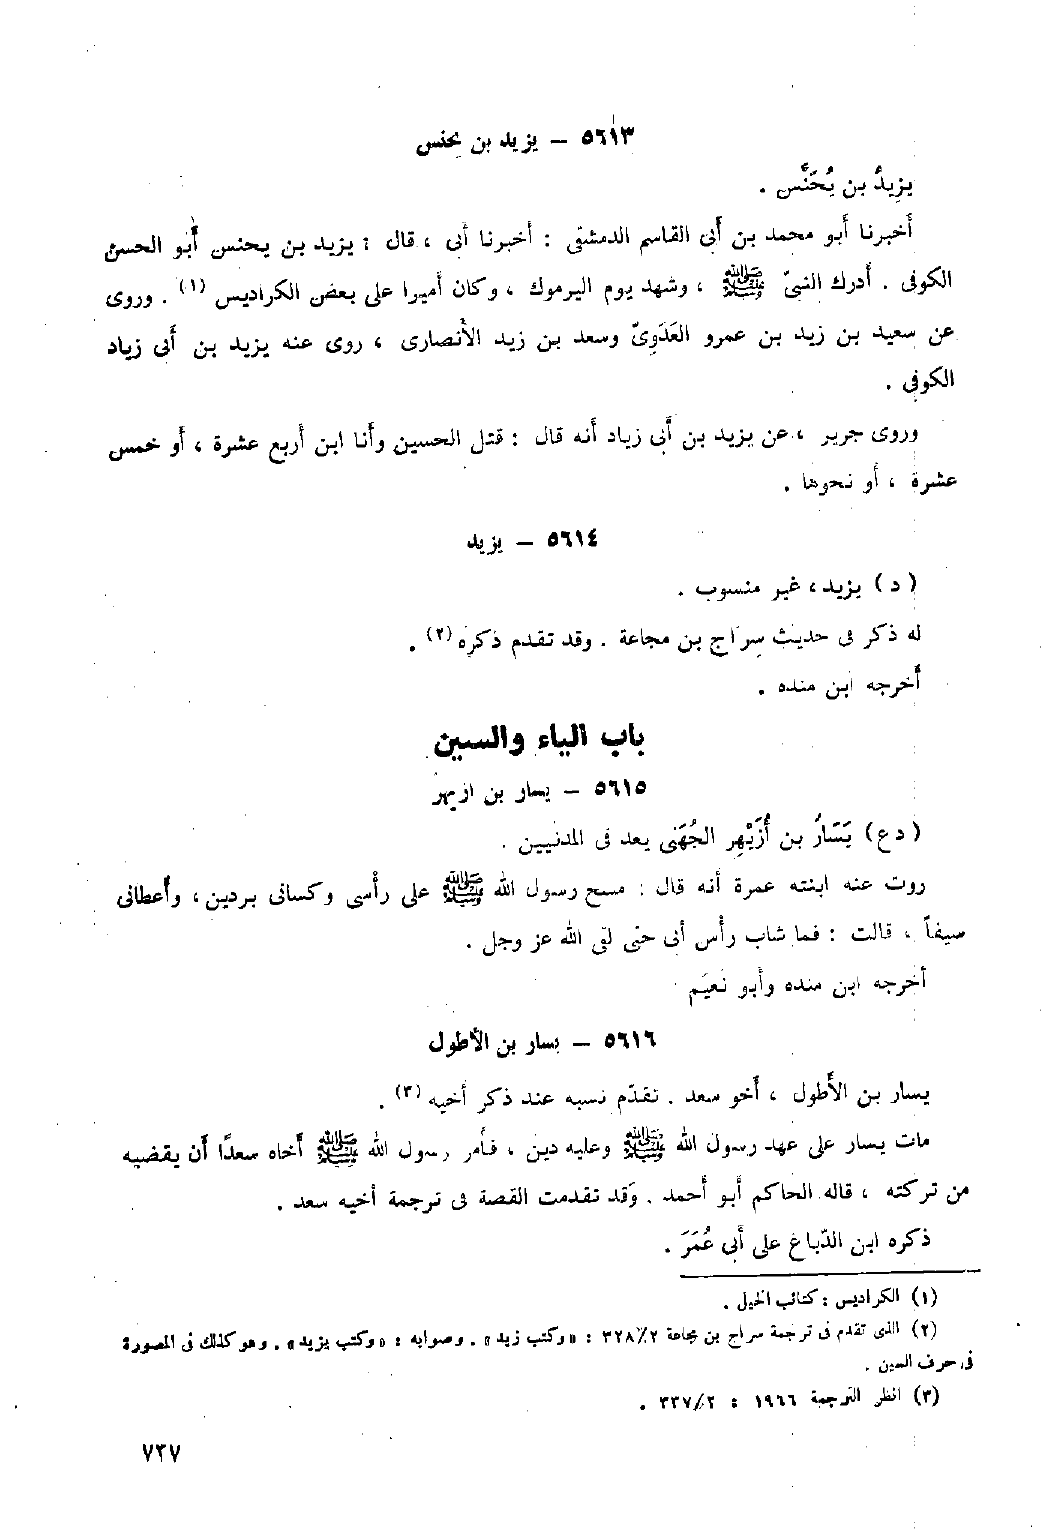 ٥٦١٣ – يزيد بن يحنس
يزيدُ بن يُحَنَّس .
أخبرنا أبو محمد بن أبى القاسم الدمشقى : أخبرنا أبى ، قال : يزيد بن يحنس أبو الحسن
الكوفى . أدرك النبىّ ﷺ ، وشهد يوم اليرموك ، وكان أميرا على بعض الكراديس (١) . وروى
عن سعيد بن زيد بن عمرو العَدَوِىّ وسعد بن زيد الأنصارى ، روى عنه يزيد بن أبى زياد
الكوفى .
وروى جرير ، عن يزيد بن أبى زياد أنه قال : قتل الحسين وأنا ابن أربع عشرة ، أو خمس
عشرة ، أو نحوها .
٥٦١٤ – يزيد
( د ) يزيد ، غير منسوب .
له ذكر فى حديث سِرَاج بن مجاعة . وقد تقدم ذكره (٢) .
أخرجه ابن منده .
باب الياء والسين
٥٦١٥ – يسار بن أزيهر
( دع ) يَسَارُ بن أُزَيْهِر الجُهَنى يعد فى المدنيين .
روت عنه ابنته عمرة أنه قال : مسح رسول الله ﷺ على رأسى وكسانى بردين ، وأعطانى
سيفاً ، قالت : فما شاب رأس أبى حتى لقى الله عز وجل .
أخرجه ابن منده وأبو نُعَيم
٥٦١٦ – يسار بن الأطول
يسار بن الأطول ، أخو سعد . تقدّم نسبه عند ذكر أخيه (٣) .
مات يسار على عهد رسول الله ﷺ وعليه دين ، فأمر رسول الله ﷺ أخاه سعدًا أن يقضيه
من تركته ، قاله الحاكم أبو أحمد . وَقد تقدمت القصة فى ترجمة أخيه سعد .
ذكره ابن الدّباغ على أبى عُمَرَ .
(١) الكراديس : كتائب الخيل .
(٢) الذى تقدم فى ترجمة سراج بن مجاعة ٣٢٨/٢ : « وكتب زيد » . وصوابه : « وكتب يزيد » . وهو كذلك فى المصورة
فى حرف السين .
(٣) انظر الترجمة ١٩٦٦ : ٣٣٧/٢ .
٧٢٧